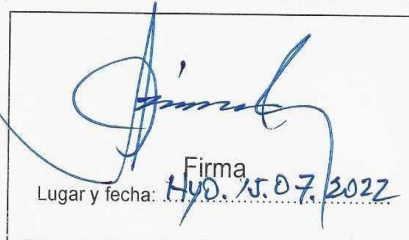 Firma
Lugar y fecha: Hyo. 15.07.2022